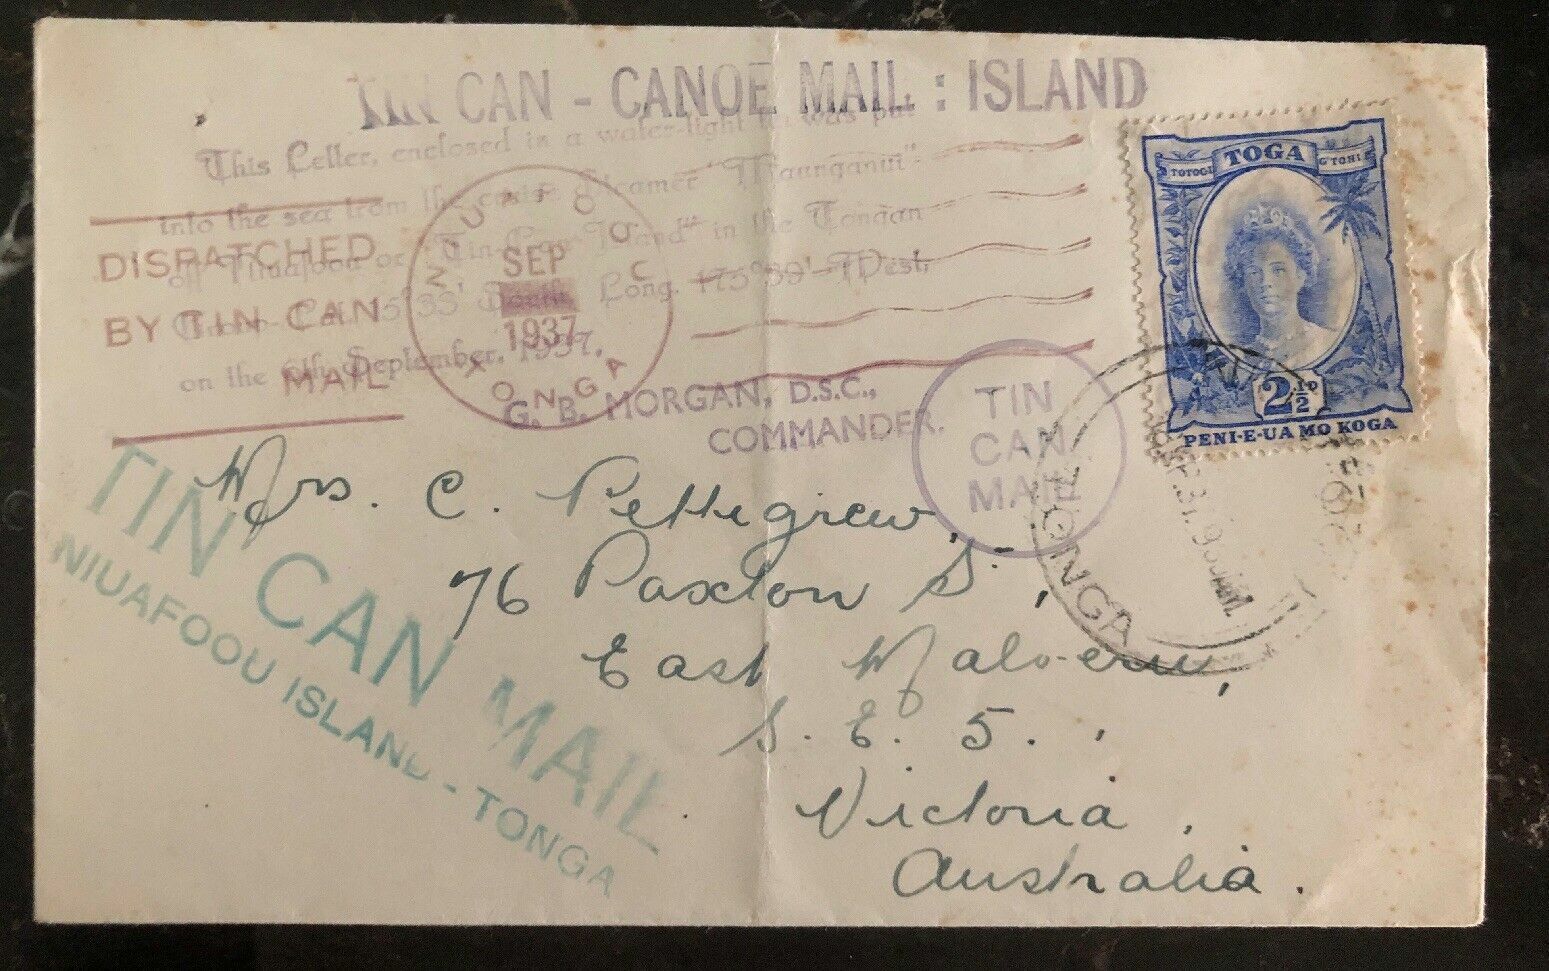 TIN CAN - CANOE MAIL : ISLAND
This Letter, enclosed in a water-tight was put
into the sea from the cruise Steamer "Maunganui"
off Niuafoou or "Tin Can Island" in the Tongan
33' South, Long. 175°39' West,
on the 6th September, 1937.
G. B. MORGAN, D.S.C.,
COMMANDER.
DISPATCHED
BY TIN CAN
MAIL
NIUAFOOU
SEP
1937
TONGA
TIN
CAN
MAIL
TOGA
TOTOGI
G TOHI
2½D
PENI-E-UA MO KOGA
TONGA
TIN CAN MAIL
NIUAFOOU ISLAND - TONGA
Mrs. C. Pettigrew,
76 Paxton St,
East Malvern,
S. E. 5.,
Victoria,
Australia.